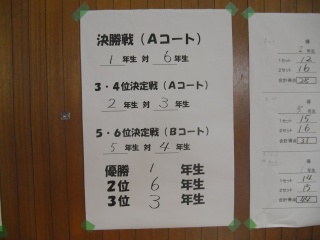 決勝戦(Aコート)
1年生 対 6年生
3・4位決定戦(Aコート)
2年生 対 3年生
5・6位決定戦(Bコート)
5年生 対 4年生
優勝 1 年生
2位 6 年生
3位 3 年生
2 年生
1セット 12
2セット 16
合計得点 28
5 年生
1セット 15
2セット 16
合計得点 31
1 年生
1セット 14
2セット 15
合計得点